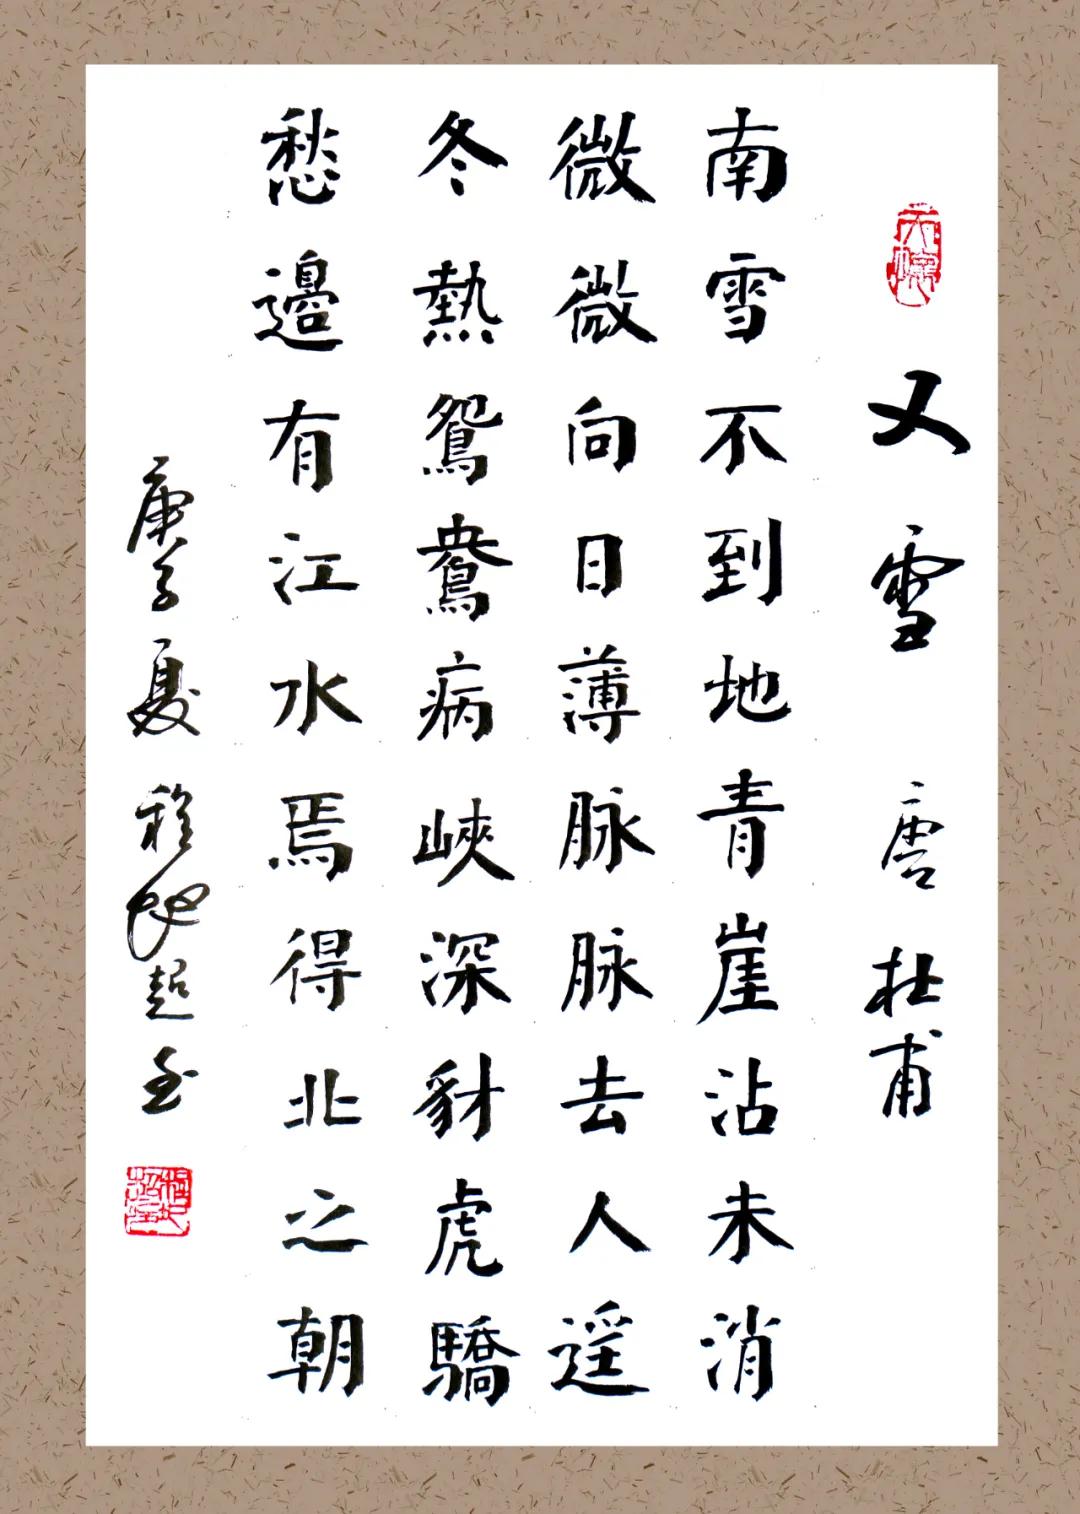 又雪 唐 杜甫
南雪不到地青崖沾未消
微微向日薄脉脉去人遥
冬熱鴛鴦病峽深豺虎驕
愁邊有江水焉得北之朝
庚子夏 程 超 書